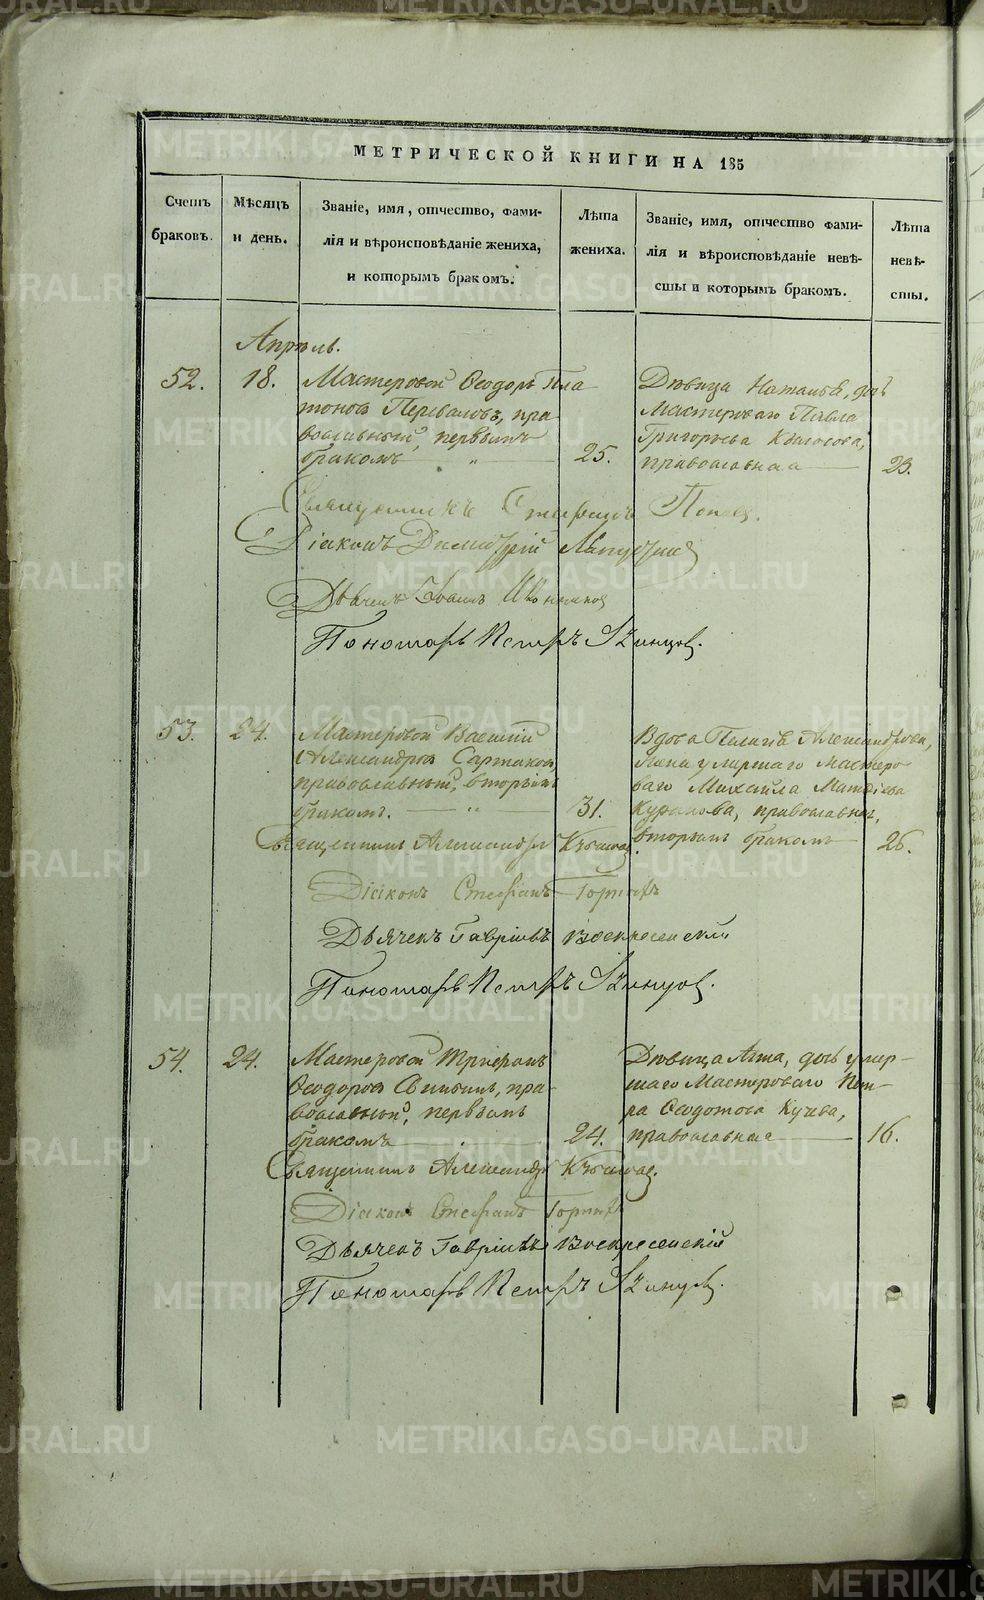 МЕТРИЧЕСКОЙ КНИГИ НА 185
Счетъ браковъ.
Мѣсяцъ и день.
Званіе, имя, отчество, фами-
лія и вѣроисповѣданіе жениха,
и которымъ бракомъ.
Лѣта жениха.
Званіе, имя, отчество фами-
лія и вѣроисповѣданіе невѣ-
сты и которымъ бракомъ.
Лѣта невѣ-
сты.
Апрѣль.
52. 18.
Мастеровой Ѳеодоръ Пла
тоновъ Перваловъ, пра-
вославный, первымъ
бракомъ 25.
Дѣвица Наталья, дочь
Мастероваго Павла
Григорьева
православная 23.
Священникъ Попов.
Діаконъ Димитрій
Дьячекъ Иванъ
Пономарь Петръ
53. 24.
Мастеровой Василій
Александровъ
православный, вторымъ
бракомъ. 31.
Вдова Александрова,
жена умершаго Мастеро-
ваго Михаила Матвѣева
православная,
вторымъ бракомъ 26.
Священникъ Александръ
Діаконъ Стефанъ
Дьячекъ Гавріилъ Воскресенскій
Пономарь Петръ
54. 24.
Мастеровой Трифонъ
Ѳеодоровъ пра-
вославный, первымъ
бракомъ 24.
Дѣвица Анна, дочь умер-
шаго Мастероваго Пет-
ра Ѳедотова
православная 16.
Священникъ Александръ
Діаконъ Стефанъ
Дьячекъ Гавріилъ Воскресенскій
Пономарь Петръ
METRIKI.GASO-URAL.RU